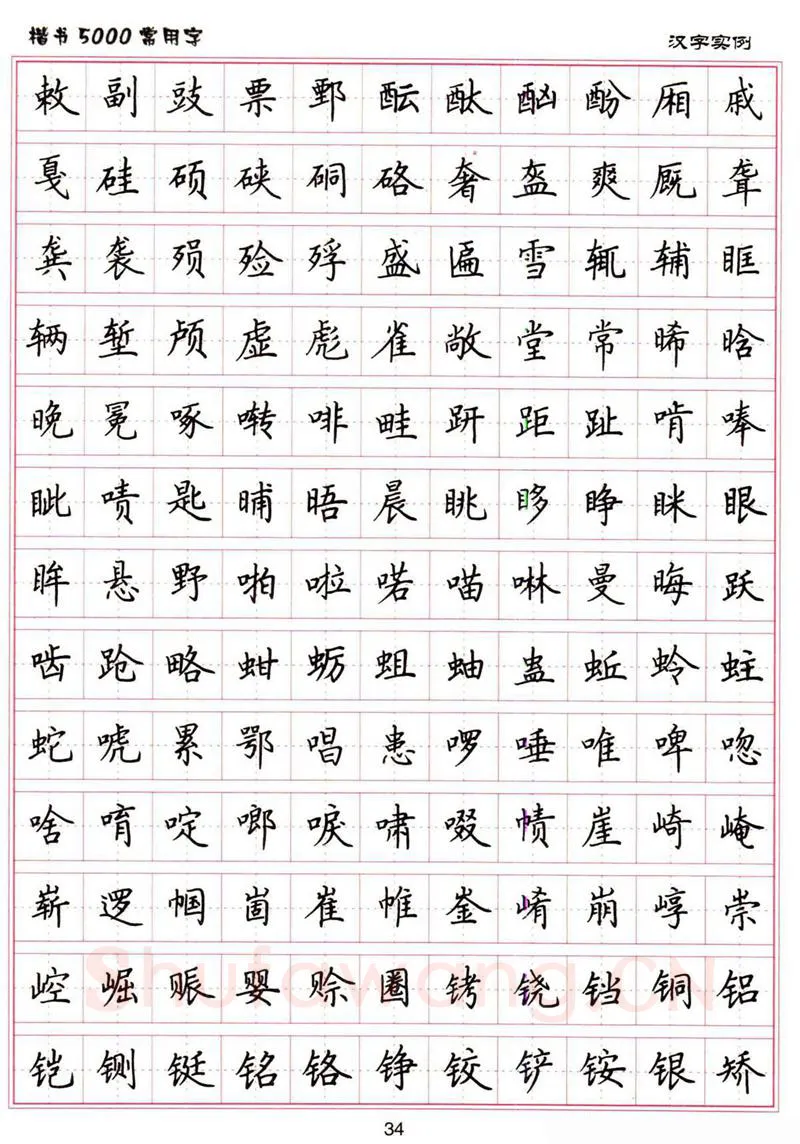 楷书5000常用字 汉字实例
敕副豉票鄄酝酞酗酚厢戚
戛硅硕硖硐硌奢盔爽厩聋
龚袭殒殓殍盛匾雪辄辅眶
辆堑颅虚彪雀敞堂常晞晗
晚冕啄啭啡畦趼距趾啃唪
眦啧匙晡晤晨眺眵睁眯眼
眸悬野啪啦喏喵啉曼晦跃
啮跄略蚶蛎蛆蚰蛊蚯蛉蛀
蛇唬累鄂唱患啰唾唯啤唿
啥唷啶啷唳啸啜帻崖崎崦
崭逻帼崮崔帷崟崤崩崞崇
崆崛赈婴赊圈铐铙铛铜铝
铠铡铤铭铬铮铰铲铵银矫
34
Shufawang.CN